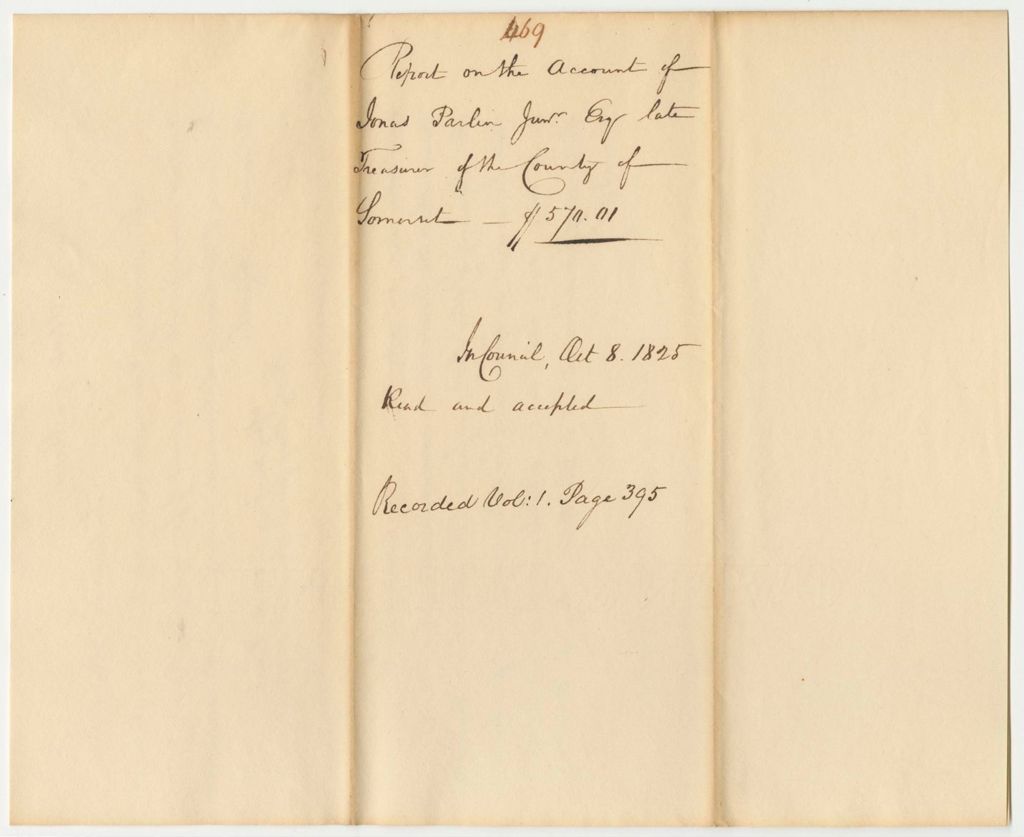 469
Report on the Account of
Jonas Parlin Junr. Esq late
Treasurer of the County of
Somerset — $570.01
In Council, Oct 8. 1825
Read and accepted
Recorded Vol: 1. Page 395